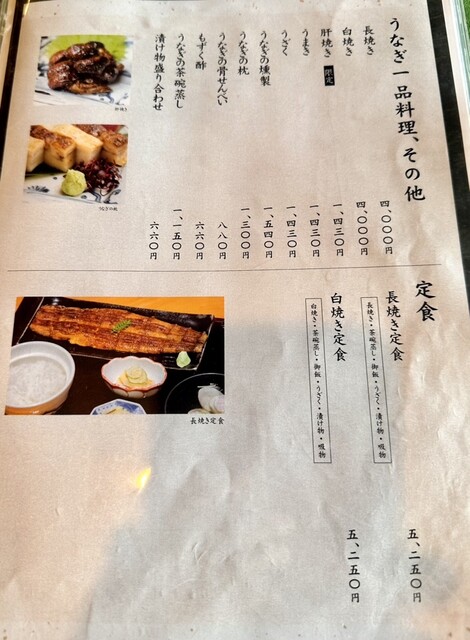 うなぎ一品料理、その他
長焼き 四、〇〇〇円
白焼き 四、〇〇〇円
肝焼き 限定 一、四三〇円
うまき 一、四三〇円
うざく 一、四三〇円
うなぎの燻製 一、五四〇円
うなぎの枕 一、三〇〇円
うなぎの骨せんべい 八八〇円
もずく酢 六六〇円
うなぎの茶碗蒸し 一、一五〇円
漬け物盛り合わせ 六六〇円
肝焼き
うなぎの枕
定食
長焼き定食 五、二五〇円
長焼き・茶碗蒸し・御飯・うざく・漬け物・吸物
白焼き定食 五、二五〇円
白焼き・茶碗蒸し・御飯・うざく・漬け物・吸物
長焼き定食